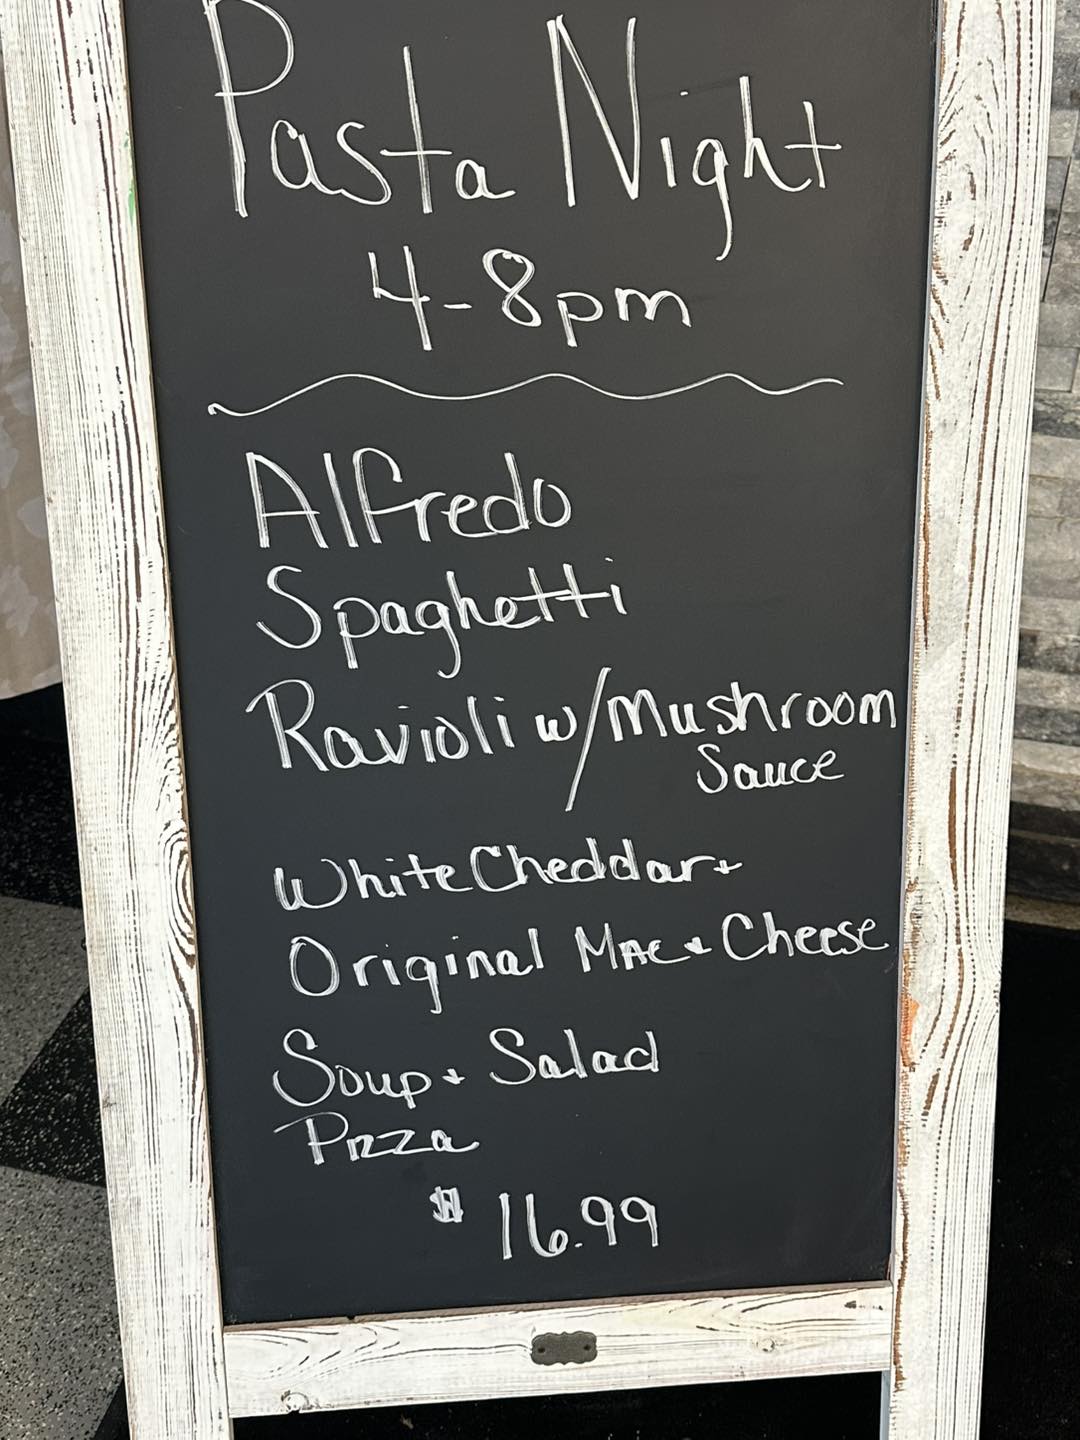 Pasta Night
4-8pm
Alfredo
Spaghetti
Ravioli w/Mushroom
Sauce
White Cheddar +
Original Mac + Cheese
Soup + Salad
Pizza
$16.99